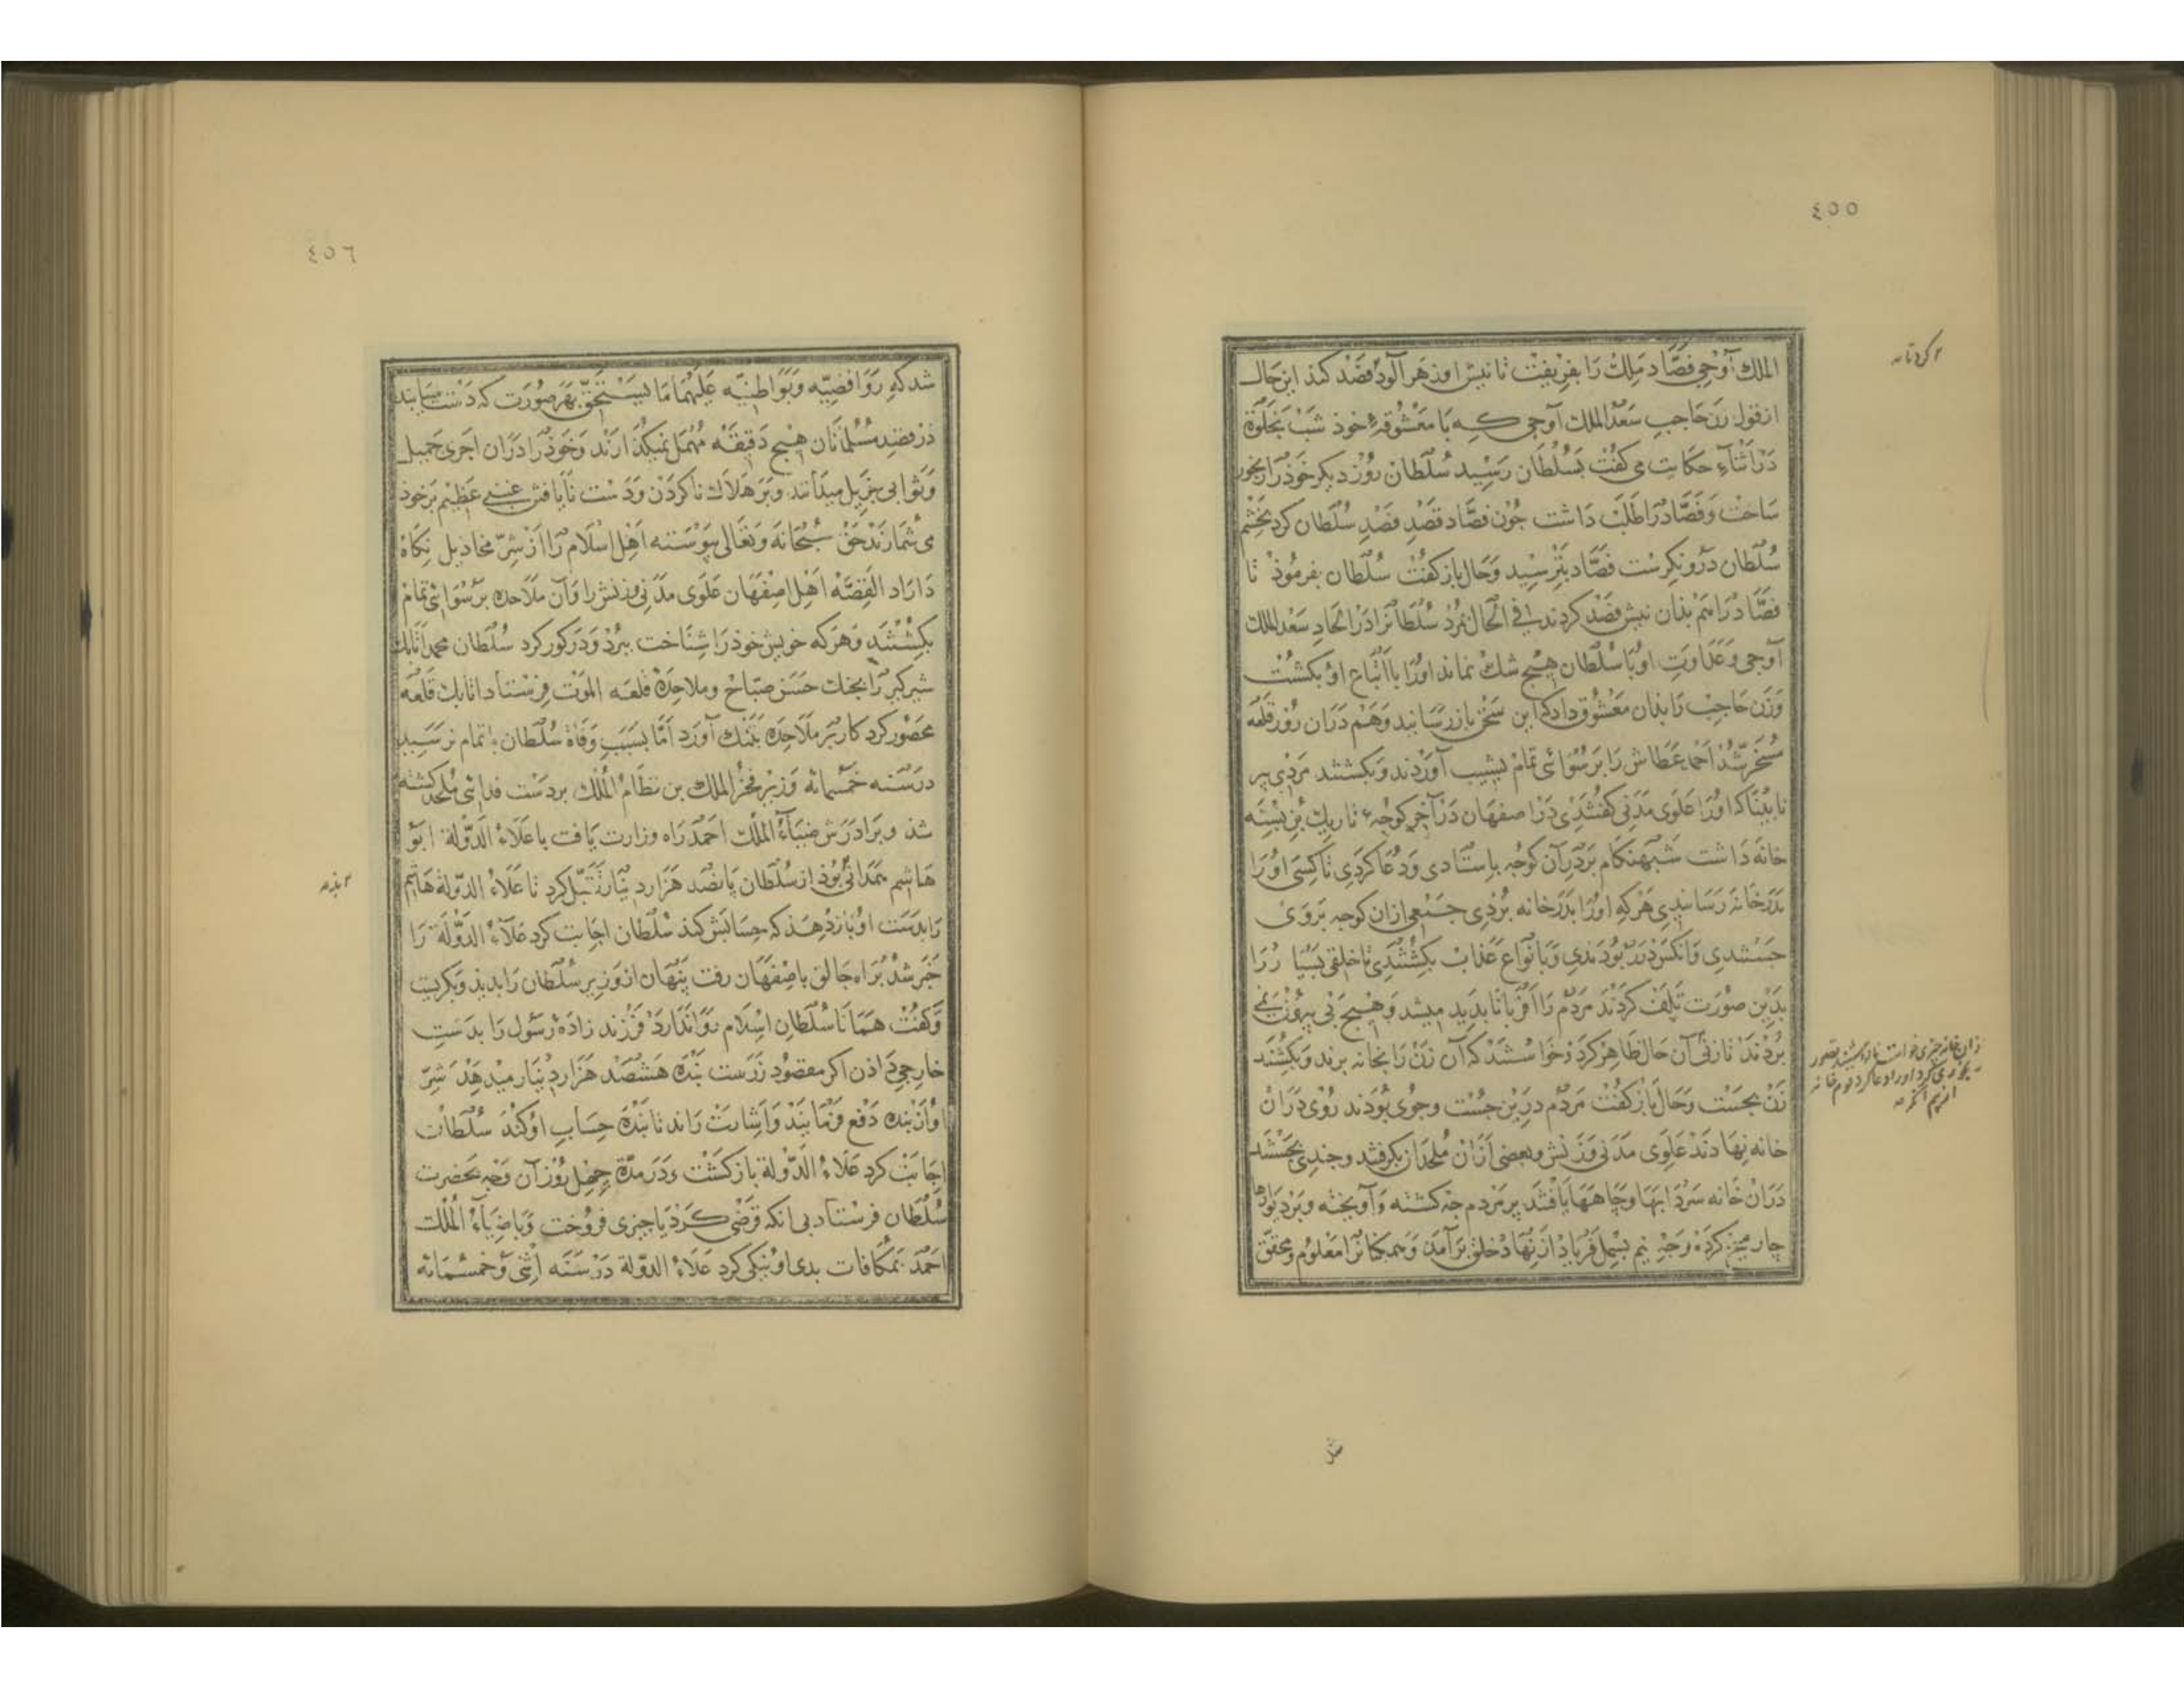 ٤٥٥
الملك آوجی فصّاد ملك را بفریفت تا نیش او زهر آلود فصد کند این حال
از قول زن حاجب سعد الملك آوجی که با معشوقهٔ خوذ شب بخلوة
در اثناء حکایت می کفت بسلطان رسید سلطان روز دیکر خوذ را رنجور
ساخت و فصّاد را طلب داشت جون فصّاد قصد فصد سلطان کرد بخشم
سلطان درو نکرست فصّاد بترسید و حال باز کفت سلطان بفرموذ تا
فصّاد را هم بذان نیش فصد کردند فی الحال بمرد سلطانرا در اتحاد سعد الملك
آوجی و عداوت او با سلطان هیچ شك نماند اورا با اتباع او بکشت
و زن حاجب را بذان معشوق داد که این سخن باز رسانید و هم دران روز قلعه
مسخر شد احمد عطاش را برسوائی تمام بشیب آوردند و بکشتند مردی پیر
نابینا که اورا علوی مدنی کفتندی در اصفهان در آخر کوجهٔ تاریك بن بسته
خانه داشت شبهنکام بر در آن کوجه باستادی و دعا کردی تا کسی اورا
بدر خانه رسانیدی هرکه اورا بدر خانه بردی جمعی ازان کوجه بر وی
جستندی و آنکس در ربودندی و بانواع عذاب بکشتندی تا خلقی بسیار را
بدین صورت تلف کردند مردم را اقربا نابدید میشد و هیچ بی بیرون نمی
بردند تا زنی آن حال ظاهر کرد و خواستند که آن زن را بخانه برند و بکشند
زن بجست و حال باز کفت مردم درین جست وجوی بوذند روی دران
خانه نهادند علوی مدنی و زنش و بعضی ازان ملحدان بکرفتند و جندی بجستند
دران خانه سردابها و جاهها یافتند بر مردم جه کشته و آویخته و بر دیوارها
چار میخ کرده و جه نیم بسمل فریاد از نهاد خلق برآمد و همکنانرا معلوم و محقق
٤٥٦
شد که روافضیه و بواطنیه علیهما ما یستحق بهر صورت که دست میابند
در قصد مسلمانان هیچ دقیقه مهمل نمیکذارند و خوذ را دران اجری جمیل
و ثوابی جزیل میدانند و بر هلاك ناکردن و دست نایافتن غبنی عظیم بر خود
می شمارند حق سبحانه و تعالی پیوسته اهل اسلام را از شر مخاذیل نکاه
داراد القصه اهل اصفهان علوی مدنی و زنش را و آن ملاحده برسوائی تمام
بکشتند و هرکه خویش خوذ را شناخت ببرد و در کور کرد سلطان محمد اتابك
شیرکیر را بجنك حسن صباح و ملاحدهٔ قلعه الموت فرستاد اتابك قلعه
محصور کرد کار بر ملاحده بتنك آورد اما بسبب وفاة سلطان باتمام نرسید
در سنه خمسمائة وزیر فخر الملك بن نظام الملك بر دست فدائی ملحد کشته
شذ و برادرش ضیاء الملك احمد راه وزارت یافت با علاء الدولة ابو
هاشم همدانی بوذ از سلطان پانصد هزار دینار تقبل کرد تا علاء الدولة هاشم
را بدست او باز دهذ که حسابش کند سلطان اجابت کرد علاء الدولة را
خبر شد براه جالق باصفهان رفت پنهان از وزیر سلطان را بدید و بکریست
و کفت همانا سلطان اسلام روا ندارد فرزند زادهٔ رسول را بدست
خارجی دادن اکر مقصود زرست بنده هشتصد هزار دینار میدهد شر
او از بنده دفع فرمایند و اشارت راند تا بنده حساب او کند سلطان
اجابت کرد علاء الدولة باز کشت و در مدة جهل روز آن وجه بحضرت
سلطان فرستاد بی انکه قرضی کرد یا جیزی فروخت و با ضیاء الملك
احمد بمکافات بدی او نیکی کرد علاء الدولة در سنه اثنی و خمسمائة